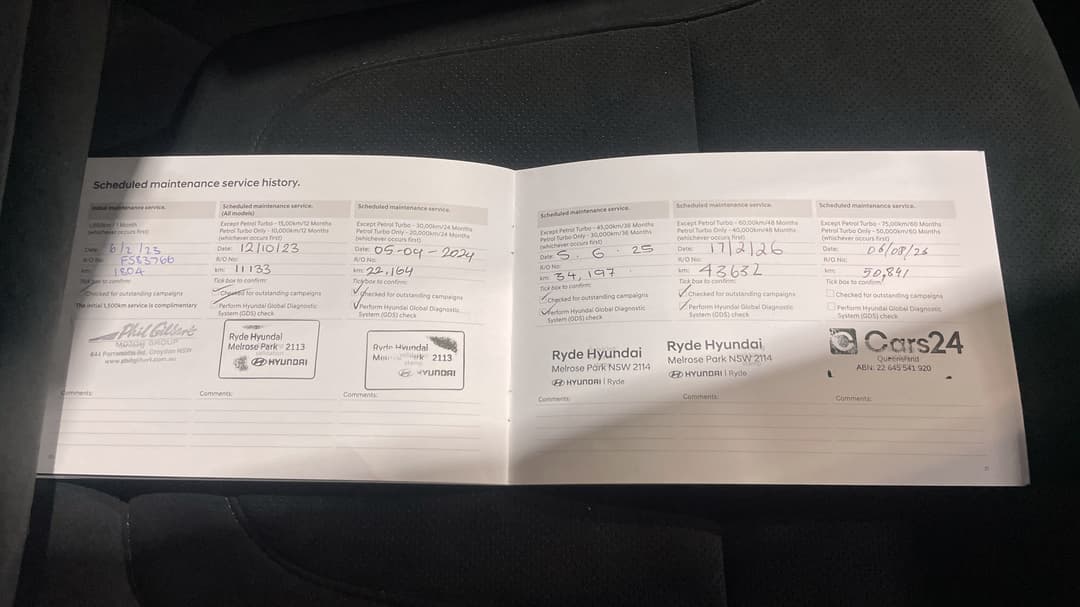 Scheduled maintenance service history.
Initial maintenance service.
1,500km / 1 Month
(whichever occurs first)
Date: 6/2/23
R/O No: F583766
km: 1804
Tick box to confirm:
Checked for outstanding campaigns
The initial 1,500km service is complimentary
Phil Gilbert
MOTOR GROUP
844 Parramatta Rd, Croydon NSW
www.philgilbert.com.au
Comments:
Scheduled maintenance service.
(All models)
Except Petrol Turbo - 15,000km/12 Months
Petrol Turbo Only - 10,000km/12 Months
(whichever occurs first)
Date: 12/10/23
R/O No:
km: 11133
Tick box to confirm:
Checked for outstanding campaigns
Perform Hyundai Global Diagnostic
System (GDS) check
Ryde Hyundai
Melrose Park 2113
HYUNDAI
Comments:
Scheduled maintenance service.
Except Petrol Turbo - 30,000km/24 Months
Petrol Turbo Only - 20,000km/24 Months
(whichever occurs first)
Date: 05-04-2024
R/O No:
km: 22,164
Tick box to confirm:
Checked for outstanding campaigns
Perform Hyundai Global Diagnostic
System (GDS) check
Ryde Hyundai
2113
HYUNDAI
Comments:
Scheduled maintenance service.
Except Petrol Turbo - 45,000km/36 Months
Petrol Turbo Only - 30,000km/36 Months
(whichever occurs first)
Date: 5. 6. 25
R/O No:
km: 34,197
Tick box to confirm:
Checked for outstanding campaigns
Perform Hyundai Global Diagnostic
System (GDS) check
Ryde Hyundai
Melrose Park NSW 2114
HYUNDAI | Ryde
Comments:
Scheduled maintenance service.
Except Petrol Turbo - 60,000km/48 Months
Petrol Turbo Only - 40,000km/48 Months
(whichever occurs first)
Date: 17/2/26
R/O No:
km: 43632
Tick box to confirm:
Checked for outstanding campaigns
Perform Hyundai Global Diagnostic
System (GDS) check
Ryde Hyundai
Melrose Park NSW 2114
HYUNDAI | Ryde
Comments:
Scheduled maintenance service.
Except Petrol Turbo - 75,000km/60 Months
Petrol Turbo Only - 50,000km/60 Months
(whichever occurs first)
Date: 06/08/26
R/O No:
km: 50,841
Tick box to confirm:
Checked for outstanding campaigns
Perform Hyundai Global Diagnostic
System (GDS) check
Cars24
Queensland
ABN: 22 645 541 920
Comments: